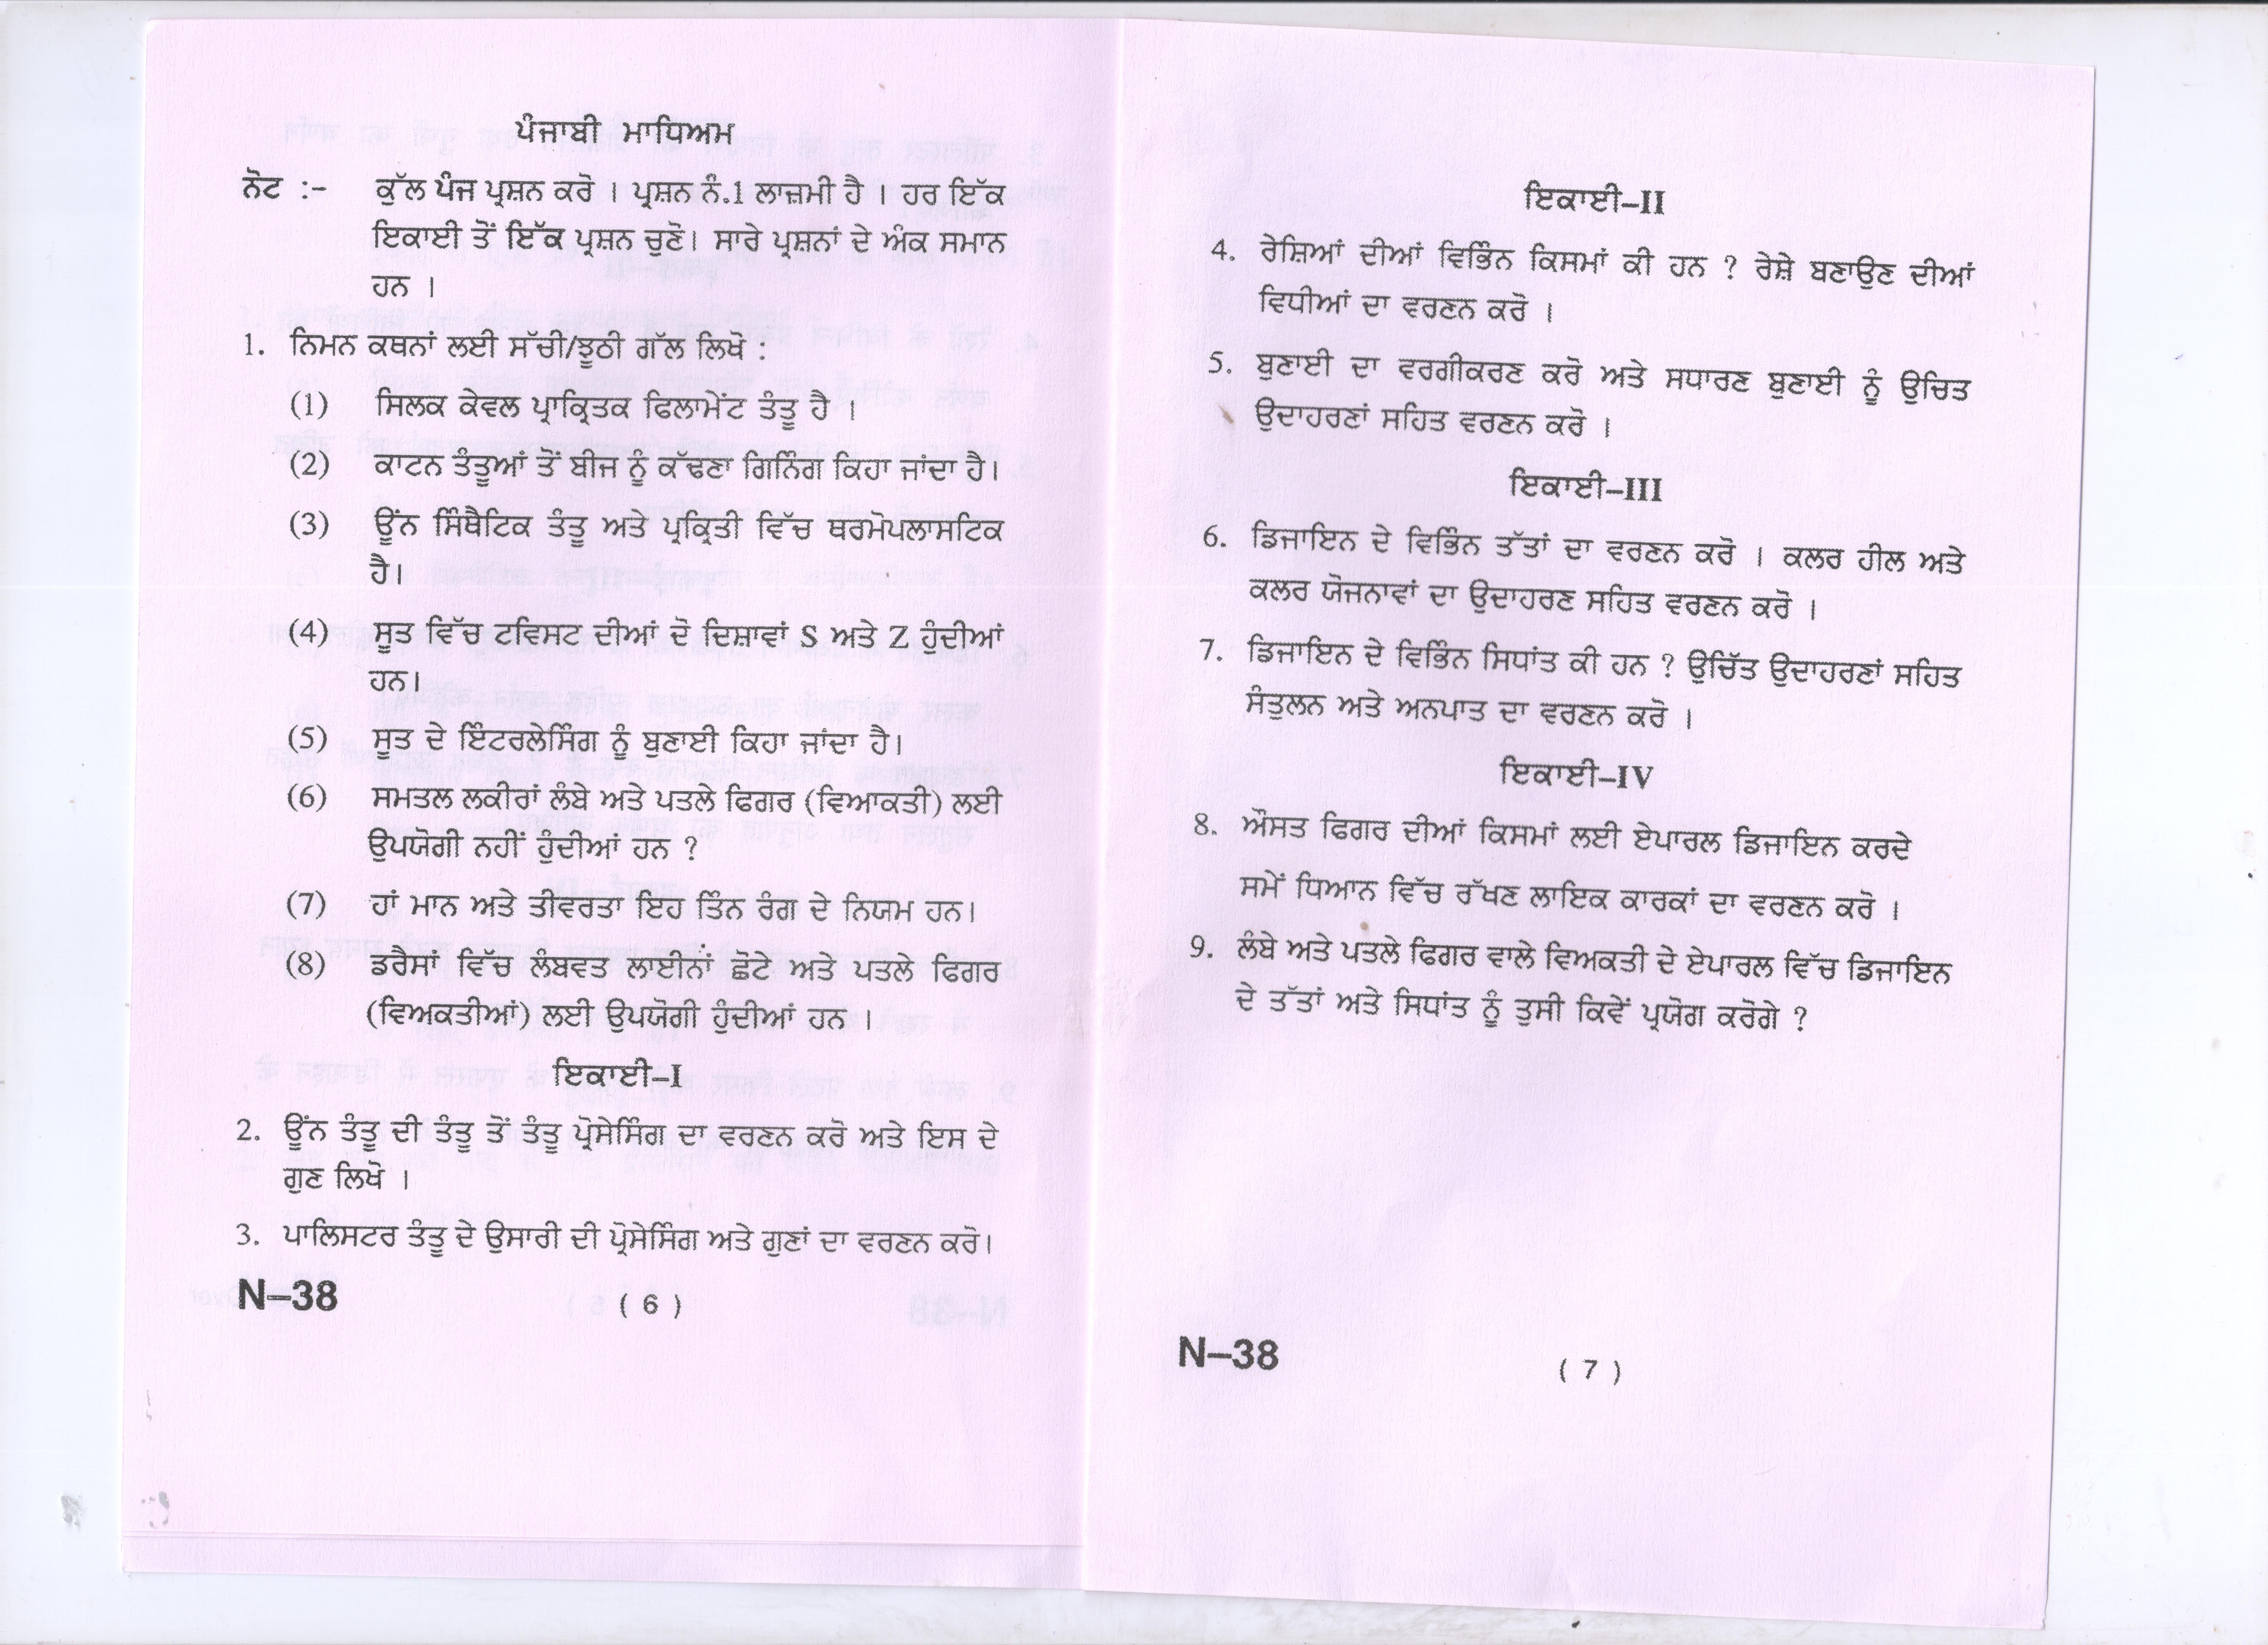 ਪੰਜਾਬੀ ਮਾਧਿਅਮ
ਨੋਟ :- ਕੁੱਲ ਪੰਜ ਪ੍ਰਸ਼ਨ ਕਰੋ । ਪ੍ਰਸ਼ਨ ਨੰ.1 ਲਾਜ਼ਮੀ ਹੈ । ਹਰ ਇੱਕ
ਇਕਾਈ ਤੋਂ ਇੱਕ ਪ੍ਰਸ਼ਨ ਚੁਣੋ। ਸਾਰੇ ਪ੍ਰਸ਼ਨਾਂ ਦੇ ਅੰਕ ਸਮਾਨ
ਹਨ ।
1. ਨਿਮਨ ਕਥਨਾਂ ਲਈ ਸੱਚੀ/ਝੂਠੀ ਗੱਲ ਲਿਖੋ :
(1) ਸਿਲਕ ਕੇਵਲ ਪ੍ਰਾਕ੍ਰਿਤਕ ਫਿਲਾਮੇਂਟ ਤੰਤੂ ਹੈ ।
(2) ਕਾਟਨ ਤੰਤੂਆਂ ਤੋਂ ਬੀਜ ਨੂੰ ਕੱਢਣਾ ਗਿਨਿੰਗ ਕਿਹਾ ਜਾਂਦਾ ਹੈ।
(3) ਊੰਨ ਸਿੰਥੈਟਿਕ ਤੰਤੂ ਅਤੇ ਪ੍ਰਕ੍ਰਿਤੀ ਵਿੱਚ ਥਰਮੋਪਲਾਸਟਿਕ
ਹੈ।
(4) ਸੂਤ ਵਿੱਚ ਟਵਿਸਟ ਦੀਆਂ ਦੋ ਦਿਸ਼ਾਵਾਂ S ਅਤੇ Z ਹੁੰਦੀਆਂ
ਹਨ।
(5) ਸੂਤ ਦੇ ਇੰਟਰਲੇਸਿੰਗ ਨੂੰ ਬੁਣਾਈ ਕਿਹਾ ਜਾਂਦਾ ਹੈ।
(6) ਸਮਤਲ ਲਕੀਰਾਂ ਲੰਬੇ ਅਤੇ ਪਤਲੇ ਫਿਗਰ (ਵਿਆਕਤੀ) ਲਈ
ਉਪਯੋਗੀ ਨਹੀਂ ਹੁੰਦੀਆਂ ਹਨ ?
(7) ਹਾਂ ਮਾਨ ਅਤੇ ਤੀਵਰਤਾ ਇਹ ਤਿੰਨ ਰੰਗ ਦੇ ਨਿਯਮ ਹਨ।
(8) ਡਰੈਸਾਂ ਵਿੱਚ ਲੰਬਵਤ ਲਾਈਨਾਂ ਛੋਟੇ ਅਤੇ ਪਤਲੇ ਫਿਗਰ
(ਵਿਅਕਤੀਆਂ) ਲਈ ਉਪਯੋਗੀ ਹੁੰਦੀਆਂ ਹਨ ।
ਇਕਾਈ–I
2. ਊੰਨ ਤੰਤੂ ਦੀ ਤੰਤੂ ਤੋਂ ਤੰਤੂ ਪ੍ਰੋਸੇਸਿੰਗ ਦਾ ਵਰਣਨ ਕਰੋ ਅਤੇ ਇਸ ਦੇ
ਗੁਣ ਲਿਖੋ ।
3. ਪਾਲਿਸਟਰ ਤੰਤੂ ਦੇ ਉਸਾਰੀ ਦੀ ਪ੍ਰੋਸੇਸਿੰਗ ਅਤੇ ਗੁਣਾਂ ਦਾ ਵਰਣਨ ਕਰੋ।
N–38 ( 6 )
ਇਕਾਈ–II
4. ਰੇਸ਼ਿਆਂ ਦੀਆਂ ਵਿਭਿੰਨ ਕਿਸਮਾਂ ਕੀ ਹਨ ? ਰੇਸ਼ੇ ਬਣਾਉਣ ਦੀਆਂ
ਵਿਧੀਆਂ ਦਾ ਵਰਣਨ ਕਰੋ ।
5. ਬੁਣਾਈ ਦਾ ਵਰਗੀਕਰਣ ਕਰੋ ਅਤੇ ਸਧਾਰਣ ਬੁਣਾਈ ਨੂੰ ਉਚਿਤ
ਉਦਾਹਰਣਾਂ ਸਹਿਤ ਵਰਣਨ ਕਰੋ ।
ਇਕਾਈ–III
6. ਡਿਜਾਇਨ ਦੇ ਵਿਭਿੰਨ ਤੱਤਾਂ ਦਾ ਵਰਣਨ ਕਰੋ । ਕਲਰ ਹੀਲ ਅਤੇ
ਕਲਰ ਯੋਜਨਾਵਾਂ ਦਾ ਉਦਾਹਰਣ ਸਹਿਤ ਵਰਣਨ ਕਰੋ ।
7. ਡਿਜਾਇਨ ਦੇ ਵਿਭਿੰਨ ਸਿਧਾਂਤ ਕੀ ਹਨ ? ਉਚਿੱਤ ਉਦਾਹਰਣਾਂ ਸਹਿਤ
ਸੰਤੁਲਨ ਅਤੇ ਅਨਪਾਤ ਦਾ ਵਰਣਨ ਕਰੋ ।
ਇਕਾਈ–IV
8. ਔਸਤ ਫਿਗਰ ਦੀਆਂ ਕਿਸਮਾਂ ਲਈ ਏਪਾਰਲ ਡਿਜਾਇਨ ਕਰਦੇ
ਸਮੇਂ ਧਿਆਨ ਵਿੱਚ ਰੱਖਣ ਲਾਇਕ ਕਾਰਕਾਂ ਦਾ ਵਰਣਨ ਕਰੋ ।
9. ਲੰਬੇ ਅਤੇ ਪਤਲੇ ਫਿਗਰ ਵਾਲੇ ਵਿਅਕਤੀ ਦੇ ਏਪਾਰਲ ਵਿੱਚ ਡਿਜਾਇਨ
ਦੇ ਤੱਤਾਂ ਅਤੇ ਸਿਧਾਂਤ ਨੂੰ ਤੁਸੀ ਕਿਵੇਂ ਪ੍ਰਯੋਗ ਕਰੋਗੇ ?
N–38 ( 7 )